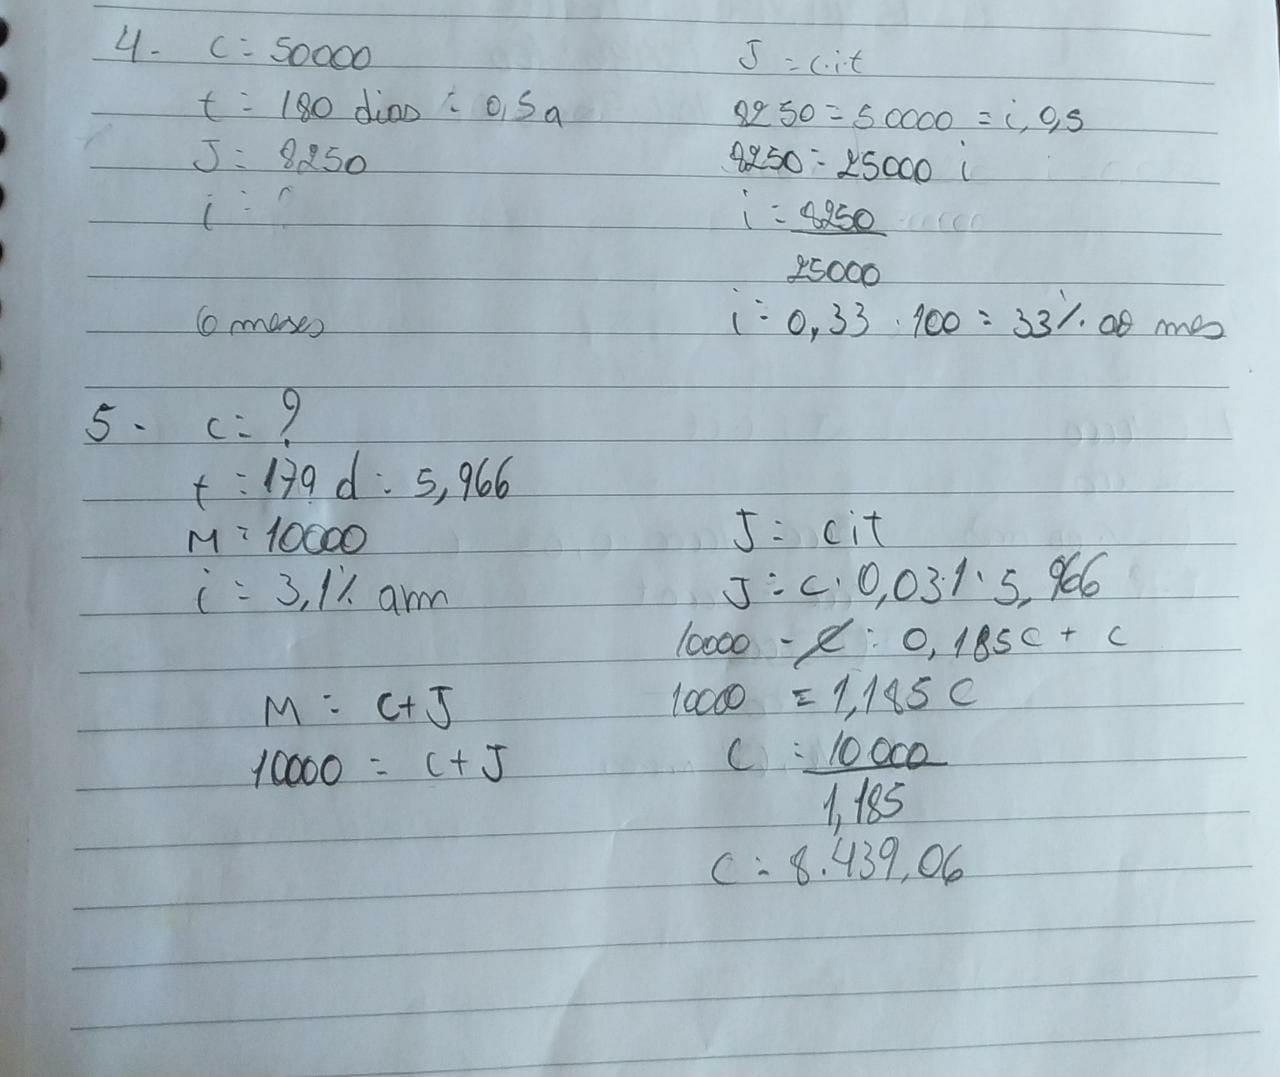 4- C = 50000
t = 180 dias = 0,5a
J = 8250
i = ?
6 meses
J = c.i.t
8250 = 50000 = i, 0,5
8250 = 25000 i
i = 8250
25000
i = 0,33 . 100 = 33% ao mes
5- C = ?
t = 179 d = 5,966
M = 10000
i = 3,1% am
M = C+J
10000 = C+J
J = cit
J = C. 0,031. 5,966
10000 - C = 0,185C + C
10000 = 1,185 C
C = 10 000
1,185
C = 8.439,06